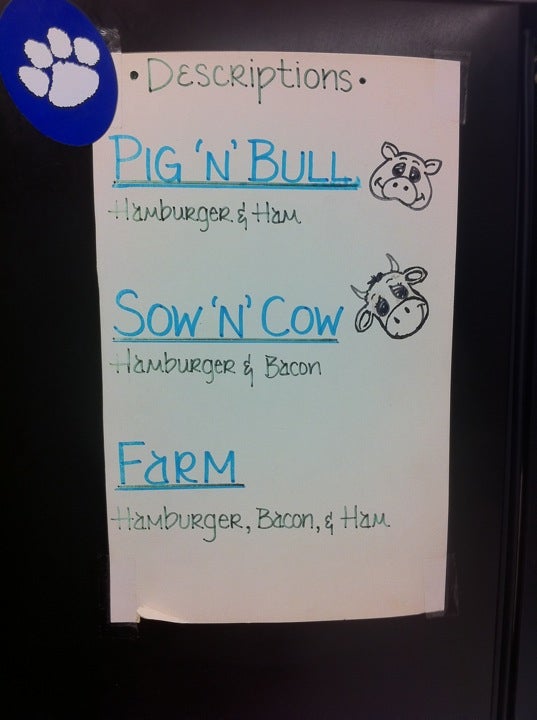 • Descriptions •
Pig 'n' Bull
Hamburger & Ham
Sow 'n' Cow
Hamburger & Bacon
Farm
Hamburger, Bacon, & Ham